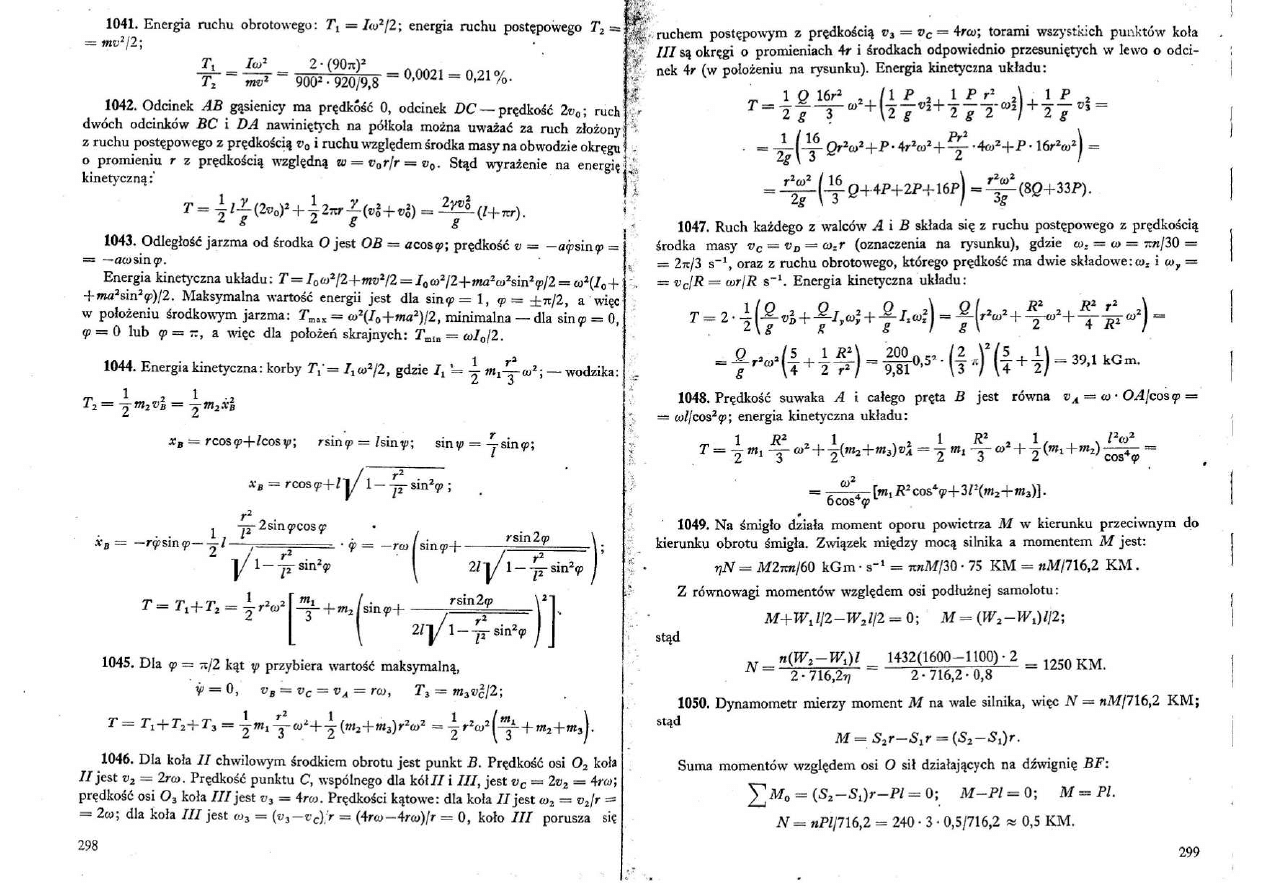 1041. Energia ruchu obrotowego: T₁ = Iω²/2; energia ruchu postępowego T₂ =
= mv²/2;
T₁/T₂ = Iω²/mv² = 2·(90π)²/(900²·920/9,8) = 0,0021 = 0,21%.
1042. Odcinek AB gąsienicy ma prędkość 0, odcinek DC — prędkość 2v₀; ruch
dwóch odcinków BC i DA nawiniętych na półkola można uważać za ruch złożony
z ruchu postępowego z prędkością v₀ i ruchu względem środka masy na obwodzie okręgu
o promieniu r z prędkością względną w = v₀r/r = v₀. Stąd wyrażenie na energię
kinetyczną:
T = 1/2 l γ/g (2v₀)² + 1/2 2πr γ/g (v₀²+v₀²) = 2γv₀²/g (l+πr).
1043. Odległość jarzma od środka O jest OB = a cos φ; prędkość v = −aφ̇ sin φ =
= −aω sin φ.
Energia kinetyczna układu: T = I₀ω²/2+mv²/2 = I₀ω²/2+ma²ω²sin²φ/2 = ω²(I₀+
+ma²sin²φ)/2. Maksymalna wartość energii jest dla sin φ = 1, φ = ±π/2, a więc
w położeniu środkowym jarzma: Tmax = ω²(I₀+ma²)/2, minimalna — dla sin φ = 0,
φ = 0 lub φ = π, a więc dla położeń skrajnych: Tmin = ωI₀/2.
1044. Energia kinetyczna: korby T₁ = I₁ω²/2, gdzie I₁ = 1/2 m₁ r²/3 ω²; — wodzika:
T₂ = 1/2 m₂v_B² = 1/2 m₂ẋ_B²
x_B = r cos φ+l cos ψ; r sin φ = l sin ψ; sin ψ = r/l sin φ;
x_B = r cos φ+l √(1− r²/l² sin²φ) ;
ẋ_B = −rφ̇ sin φ− 1/2 l (r²/l² 2 sin φ cos φ)/√(1− r²/l² sin²φ) · φ̇ = −rω (sin φ+ r sin 2φ/(2l√(1− r²/l² sin²φ)));
T = T₁+T₂ = 1/2 r²ω² [m₁/3 +m₂ (sin φ+ r sin 2φ/(2l√(1− r²/l² sin²φ)))²].
1045. Dla φ = π/2 kąt ψ przybiera wartość maksymalną,
ψ̇ = 0, v_B = v_C = v_A = rω, T₃ = m₃v_C²/2;
T = T₁+T₂+T₃ = 1/2 m₁ r²/3 ω²+ 1/2 (m₂+m₃)r²ω² = 1/2 r²ω² (m₁/3 +m₂+m₃).
1046. Dla koła II chwilowym środkiem obrotu jest punkt B. Prędkość osi O₂ koła
II jest v₂ = 2rω. Prędkość punktu C, wspólnego dla kół II i III, jest v_C = 2v₂ = 4rω;
prędkość osi O₃ koła III jest v₃ = 4rω. Prędkości kątowe: dla koła II jest ω₂ = v₂/r =
= 2ω; dla koła III jest ω₃ = (v₃−v_C)/r = (4rω−4rω)/r = 0, koło III porusza się
298
ruchem postępowym z prędkością v₃ = v_C = 4rω; torami wszystkich punktów koła
III są okręgi o promieniach 4r i środkach odpowiednio przesuniętych w lewo o odci-
nek 4r (w położeniu na rysunku). Energia kinetyczna układu:
T = 1/2 Q/g 16r²/3 ω²+ (1/2 P/g v₂²+ 1/2 P/g r²/2 ω₂²) + 1/2 P/g v₃² =
= 1/2g (16/3 Qr²ω²+P·4r²ω²+ Pr²/2 ·4ω²+P·16r²ω²) =
= r²ω²/2g (16/3 Q+4P+2P+16P) = r²ω²/3g (8Q+33P).
1047. Ruch każdego z walców A i B składa się z ruchu postępowego z prędkością
środka masy v_C = v_D = ω_z r (oznaczenia na rysunku), gdzie ω_z = ω = πn/30 =
= 2π/3 s⁻¹, oraz z ruchu obrotowego, którego prędkość ma dwie składowe: ω_z i ω_y =
= v_C/R = ωr/R s⁻¹. Energia kinetyczna układu:
T = 2· 1/2 (Q/g v_D²+ Q/g I_yω_y²+ Q/g I_zω_z²) = Q/g (r²ω²+ R²/2 ω²+ R²/4 r²/R² ω²) =
= Q/g r²ω² (5/4 + 1/2 R²/r²) = 200/9,81 0,5²· (2/3 π)² (5/4 + 1/2) = 39,1 kGm.
1048. Prędkość suwaka A i całego pręta B jest równa v_A = ω · OA/cos φ =
= ωl/cos²φ; energia kinetyczna układu:
T = 1/2 m₁ R²/3 ω²+ 1/2 (m₂+m₃)v_A² = 1/2 m₁ R²/3 ω²+ 1/2 (m₁+m₂) l²ω²/cos⁴φ =
= ω²/6cos⁴φ [m₁R²cos⁴φ+3l²(m₂+m₃)].
1049. Na śmigło działa moment oporu powietrza M w kierunku przeciwnym do
kierunku obrotu śmigła. Związek między mocą silnika a momentem M jest:
ηN = M2πn/60 kGm·s⁻¹ = πnM/30·75 KM = nM/716,2 KM.
Z równowagi momentów względem osi podłużnej samolotu:
M+W₁l/2−W₂l/2 = 0; M = (W₂−W₁)l/2;
stąd
N = n(W₂−W₁)l/(2·716,2η) = 1432(1600−1100)·2/(2·716,2·0,8) = 1250 KM.
1050. Dynamometr mierzy moment M na wale silnika, więc N = nM/716,2 KM;
stąd
M = S₂r−S₁r = (S₂−S₁)r.
Suma momentów względem osi O sił działających na dźwignię BF:
∑M₀ = (S₂−S₁)r−Pl = 0; M−Pl = 0; M = Pl.
N = nPl/716,2 = 240·3·0,5/716,2 ≈ 0,5 KM.
299